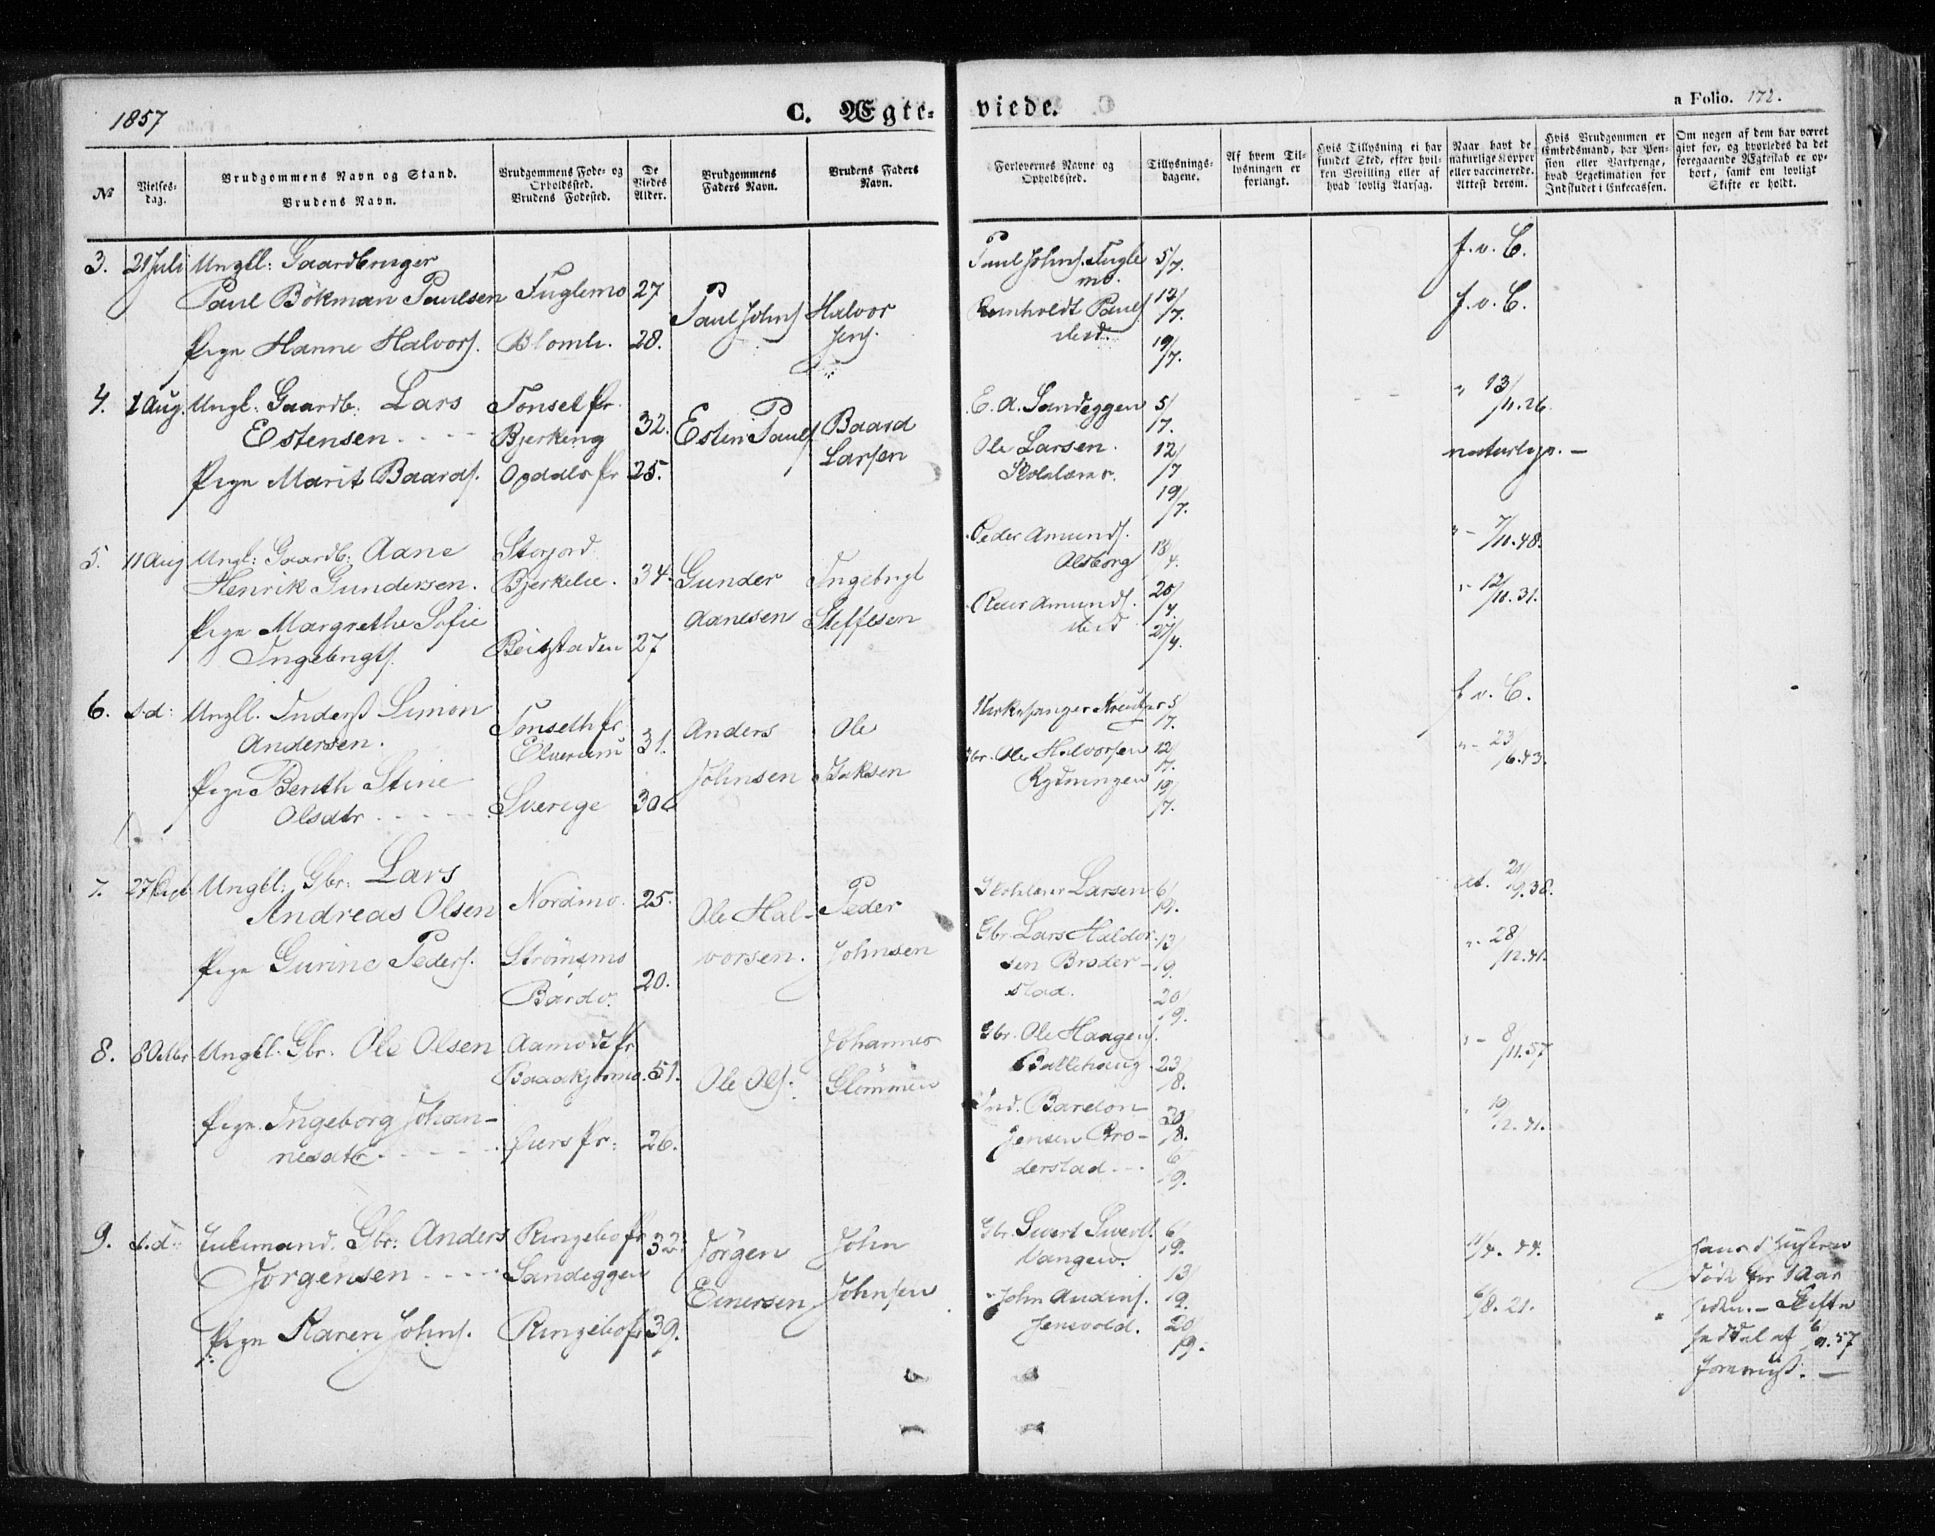 1857
C. Ægte-
viede.
a Folio. 172.
No
Vielses-
dag.
Brudgommens Navn og Stand.
Brudens Navn.
Brudgommens Føde- og
Opholdssted.
Brudens Fødested.
De
Viedes
Alder.
Brudgommens
Faders Navn.
Brudens Faders
Navn.
Forlovernes Navne og
Opholdssted.
Tillysnings-
dagene.
Af hvem Til-
lysningen er
forlangt.
Hvis Tillysning ei har
fundet Sted, efter hvil-
ken Bevilling eller af
hvad lovlig Aarsag.
Naar havt de
naturlige Kopper
eller vaccinerede.
Attest derom.
Hvis Brudgommen er
Embedsmand, har Pen-
sion eller Vartpenge,
hvad Legitimation for
Indskudet i Enkecassen.
Om nogen af dem har været
gift før, og hvorledes da det
foregaaende Ægteskab er op-
hørt, samt om lovligt
Skifte er holdt.
3. 21 Juli Ungkl: Gaardbruger
Paul Bökman Paulsen Fuglemo 27
Paul Johns. Halvor
Jens.
Pige Hanne Halvors. Blomli. 28.
Paul Johns. Fugle
mo.
5/7.
12/7.
19/7.
f. v. C.
f. v. C.
4. 1 Aug. Ungk: Gaardb: Lars
Estensen
Tonset pr.
Bjerkeng
32. Esten Pauls. Baard
Larsen
Pige Marit Baards. Opdals pr 25.
E. A. Sandeggen
Ole Larsen
5/7.
12/7
19/7.
" 13/11.26.
naturlige. —
5. 11 Aug Ungk: Gaardb: Aane
Henrik Gundersen.
Storjord
Bjerkelie.
34. Gunder
Aanesen
Ingebrigt
Steffesen
Pige Margrethe Sofie
Ingebrigts.
Beitstaden 27
Peder Amunds.
Alsborg
18/4.
25/4.
27/4.
Amunds.
" - 7/11.48.
" - 12/10.31.
6. s.d: Ungkl. Inderst Simon
Andersen.
Tonseth pr.
Elverum
31. Anders
Johnsen
Ole
Isaksen
Pige Berith Stine
Olsdtr
Sverige 30
Kirkesanger
Gbr. Ole Halvorsen
Rydningen
5/7.
12/7.
19/7.
f. v. C.
" - 23/6.43.
7. 27 Sept Ungkl: Gbr: Lars
Andreas Olsen
Nordmo. 25.
Ole Hal-
vorsen.
Peder
Johnsen
Pige Gurine Peders.
Strömsmo
Bardo.
20.
Skolelærer Larsen
Gbr. Lars Haldor-
sen Broder-
stad.
6/9.
13/9.
20/9.
At. 21/9.38.
" - 28/12.41.
8. 8 Octbr Ungkl. Gbr. Ole Olsen
Aamodt pr
51. Ole Ols.
Johannes
Glömmen
Pige. Ingeborg Johan-
nesdtr
26.
Gbr. Ole Haagens.
Bakkehaug
Ind. Bardon
Jensen Bro-
derstad
23/8.
30/8.
6/9.
" - 8/11.57
" 19/2.41.
9. s.d: Enkemand. Gbr: Anders
Jörgensen
Ringebo pr
Sandeggen
32. Jörgen
Einersen
John
Johnsen
Pige Karen Johns. Ringebo pr 39.
Gbr. Sivert Siverts.
Vangen.
John Audens.
Jensvold.
6/9.
13/9.
20/9.
11/4. 44.
6/8. 21.
Hans Hustrue
døde for 1 Aar
siden. — Skifte
seddel af 6/9.57
foreviist. —